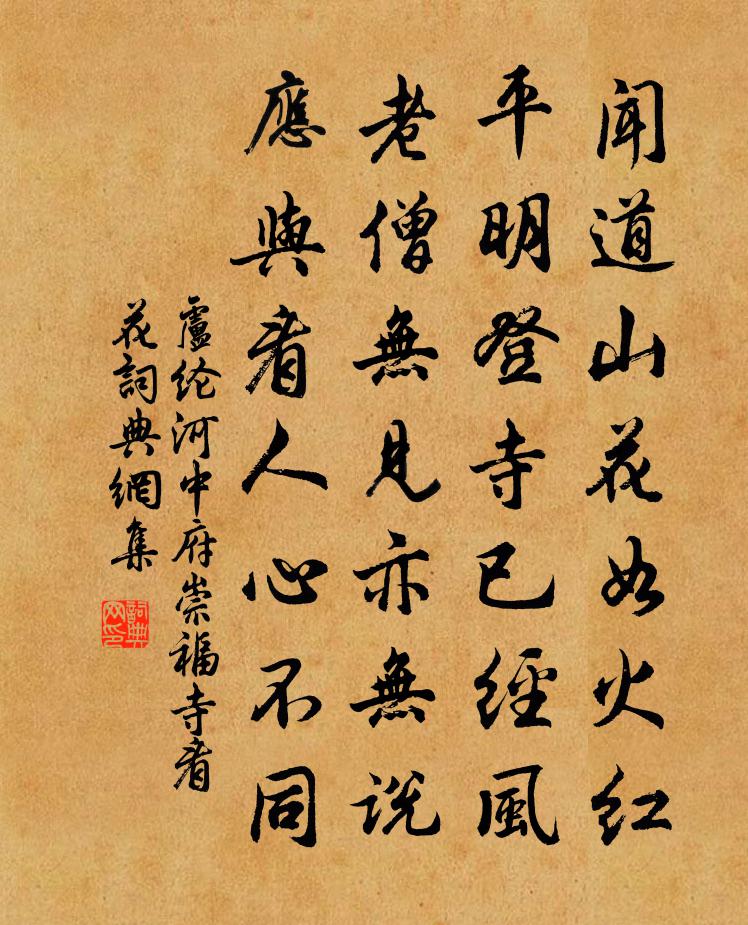 闻道山花如火红
平明登寺已經風
老僧無見亦無説
應與看人心不同
盧纶河中府崇福寺看
花詞典網集
詞典网印